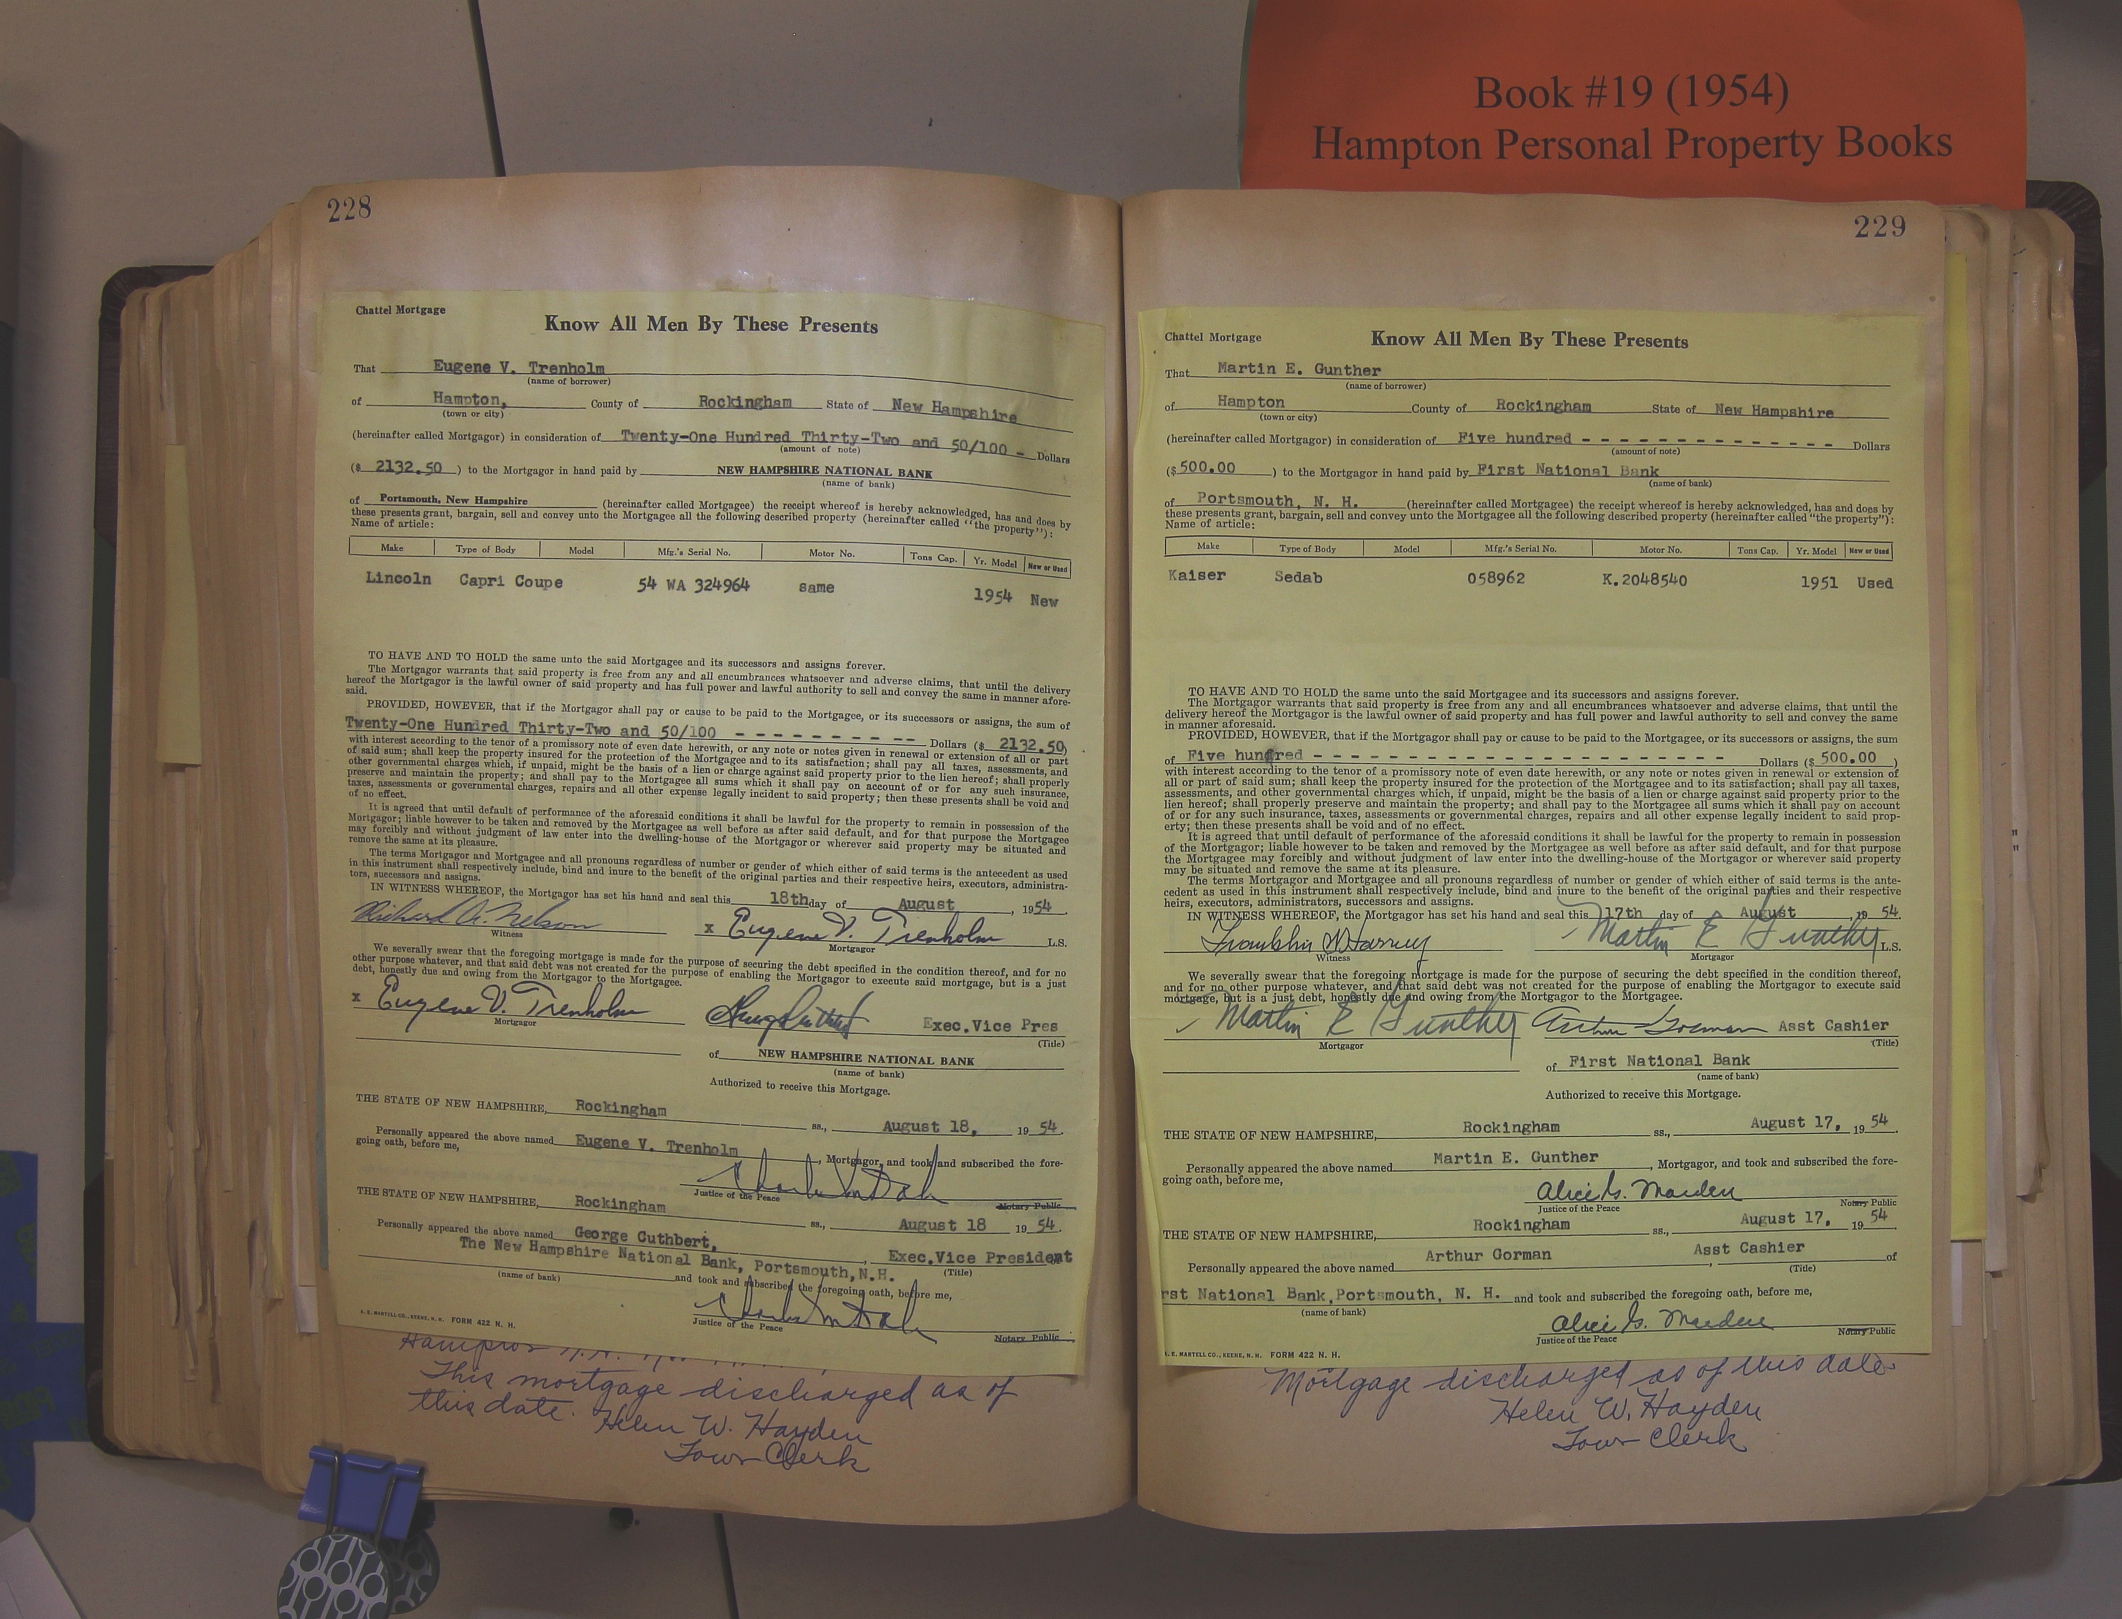 Book #19 (1954)
Hampton Personal Property Books
228
Chattel Mortgage
Know All Men By These Presents
That Eugene V. Trenholm
(name of borrower)
of Hampton, County of Rockingham State of New Hampshire
(town or city)
(hereinafter called Mortgagor) in consideration of Twenty-One Hundred Thirty-Two and 50/100 - Dollars
(amount of note)
($ 2132.50 ) to the Mortgagor in hand paid by NEW HAMPSHIRE NATIONAL BANK
(name of bank)
of Portsmouth, New Hampshire (hereinafter called Mortgagee) the receipt whereof is hereby acknowledged, has and does by
these presents grant, bargain, sell and convey unto the Mortgagee all the following described property (hereinafter called "the property"):
Name of article:
Make Type of Body Model Mfg.'s Serial No. Motor No. Tons Cap. Yr. Model New or Used
Lincoln Capri Coupe 54 WA 324964 same 1954 New
TO HAVE AND TO HOLD the same unto the said Mortgagee and its successors and assigns forever.
The Mortgagor warrants that said property is free from any and all encumbrances whatsoever and adverse claims, that until the delivery
hereof the Mortgagor is the lawful owner of said property and has full power and lawful authority to sell and convey the same in manner afore-
said.
PROVIDED, HOWEVER, that if the Mortgagor shall pay or cause to be paid to the Mortgagee, or its successors or assigns, the sum of
Twenty-One Hundred Thirty-Two and 50/100 - - - - - - - - - - Dollars ($ 2132.50)
with interest according to the tenor of a promissory note of even date herewith, or any note or notes given in renewal or extension of all or part
of said sum; shall keep the property insured for the protection of the Mortgagee and to its satisfaction; shall pay all taxes, assessments, and
other governmental charges which, if unpaid, might be the basis of a lien or charge against said property prior to the lien hereof; shall properly
preserve and maintain the property; and shall pay to the Mortgagee all sums which it shall pay on account of or for any such insurance,
taxes, assessments or governmental charges, repairs and all other expense legally incident to said property; then these presents shall be void and
of no effect.
It is agreed that until default of performance of the aforesaid conditions it shall be lawful for the property to remain in possession of the
Mortgagor; liable however to be taken and removed by the Mortgagee as well before as after said default, and for that purpose the Mortgagee
may forcibly and without judgment of law enter into the dwelling-house of the Mortgagor or wherever said property may be situated and
remove the same at its pleasure.
The terms Mortgagor and Mortgagee and all pronouns regardless of number or gender of which either of said terms is the antecedent as used
in this instrument shall respectively include, bind and inure to the benefit of the original parties and their respective heirs, executors, administra-
tors, successors and assigns.
IN WITNESS WHEREOF, the Mortgagor has set his hand and seal this 18th day of August , 1954.
Richard A. Nelson x Eugene V. Trenholm L.S.
Witness Mortgagor
We severally swear that the foregoing mortgage is made for the purpose of securing the debt specified in the condition thereof, and for no
other purpose whatever, and that said debt was not created for the purpose of enabling the Mortgagor to execute said mortgage, but is a just
debt, honestly due and owing from the Mortgagor to the Mortgagee.
x Eugene V. Trenholm Exec.Vice Pres
Mortgagor (Title)
of NEW HAMPSHIRE NATIONAL BANK
(name of bank)
Authorized to receive this Mortgage.
THE STATE OF NEW HAMPSHIRE, Rockingham ss., August 18, 19 54.
Personally appeared the above named Eugene V. Trenholm , Mortgagor, and took and subscribed the fore-
going oath, before me,
Justice of the Peace Notary Public
THE STATE OF NEW HAMPSHIRE, Rockingham ss., August 18 19 54.
Personally appeared the above named George Cuthbert, , Exec.Vice President of
The New Hampshire National Bank, Portsmouth,N.H. (Title)
(name of bank) and took and subscribed the foregoing oath, before me,
Justice of the Peace Notary Public
A. E. MARTELL CO., KEENE, N. H. FORM 422 N. H.
This mortgage discharged as of
this date. Helen W. Hayden
Town Clerk
229
Chattel Mortgage
Know All Men By These Presents
That Martin E. Gunther
(name of borrower)
of Hampton County of Rockingham State of New Hampshire
(town or city)
(hereinafter called Mortgagor) in consideration of Five hundred - - - - - - - - - - - - - - Dollars
(amount of note)
($ 500.00 ) to the Mortgagor in hand paid by First National Bank
(name of bank)
of Portsmouth, N. H. (hereinafter called Mortgagee) the receipt whereof is hereby acknowledged, has and does by
these presents grant, bargain, sell and convey unto the Mortgagee all the following described property (hereinafter called "the property"):
Name of article:
Make Type of Body Model Mfg.'s Serial No. Motor No. Tons Cap. Yr. Model New or Used
Kaiser Sedab 058962 K.2048540 1951 Used
TO HAVE AND TO HOLD the same unto the said Mortgagee and its successors and assigns forever.
The Mortgagor warrants that said property is free from any and all encumbrances whatsoever and adverse claims, that until the
delivery hereof the Mortgagor is the lawful owner of said property and has full power and lawful authority to sell and convey the same
in manner aforesaid.
PROVIDED, HOWEVER, that if the Mortgagor shall pay or cause to be paid to the Mortgagee, or its successors or assigns, the sum
of Five hundred - - - - - - - - - - - - - - - - - - - - - - Dollars ($ 500.00 )
with interest according to the tenor of a promissory note of even date herewith, or any note or notes given in renewal or extension of
all or part of said sum; shall keep the property insured for the protection of the Mortgagee and to its satisfaction; shall pay all taxes,
assessments, and other governmental charges which, if unpaid, might be the basis of a lien or charge against said property prior to the
lien hereof; shall properly preserve and maintain the property; and shall pay to the Mortgagee all sums which it shall pay on account
of or for any such insurance, taxes, assessments or governmental charges, repairs and all other expense legally incident to said prop-
erty; then these presents shall be void and of no effect.
It is agreed that until default of performance of the aforesaid conditions it shall be lawful for the property to remain in possession
of the Mortgagor; liable however to be taken and removed by the Mortgagee as well before as after said default, and for that purpose
the Mortgagee may forcibly and without judgment of law enter into the dwelling-house of the Mortgagor or wherever said property
may be situated and remove the same at its pleasure.
The terms Mortgagor and Mortgagee and all pronouns regardless of number or gender of which either of said terms is the ante-
cedent as used in this instrument shall respectively include, bind and inure to the benefit of the original parties and their respective
heirs, executors, administrators, successors and assigns.
IN WITNESS WHEREOF, the Mortgagor has set his hand and seal this 17th day of August , 19 54.
Martin E Gunther L.S.
Witness Mortgagor
We severally swear that the foregoing mortgage is made for the purpose of securing the debt specified in the condition thereof,
and for no other purpose whatever, and that said debt was not created for the purpose of enabling the Mortgagor to execute said
mortgage, but is a just debt, honestly due and owing from the Mortgagor to the Mortgagee.
Martin E Gunther Arthur Gorman Asst Cashier
Mortgagor (Title)
of First National Bank
(name of bank)
Authorized to receive this Mortgage.
THE STATE OF NEW HAMPSHIRE, Rockingham ss., August 17, 19 54.
Personally appeared the above named Martin E. Gunther , Mortgagor, and took and subscribed the fore-
going oath, before me,
Alice G. Marden
Justice of the Peace Notary Public
THE STATE OF NEW HAMPSHIRE, Rockingham ss., August 17, 19 54
Personally appeared the above named Arthur Gorman , Asst Cashier of
(Title)
rst National Bank,Portsmouth, N. H. and took and subscribed the foregoing oath, before me,
(name of bank)
Alice G. Marden
Justice of the Peace Notary Public
A. E. MARTELL CO., KEENE, N. H. FORM 422 N. H.
Mortgage discharged as of this date
Helen W. Hayden
Town Clerk